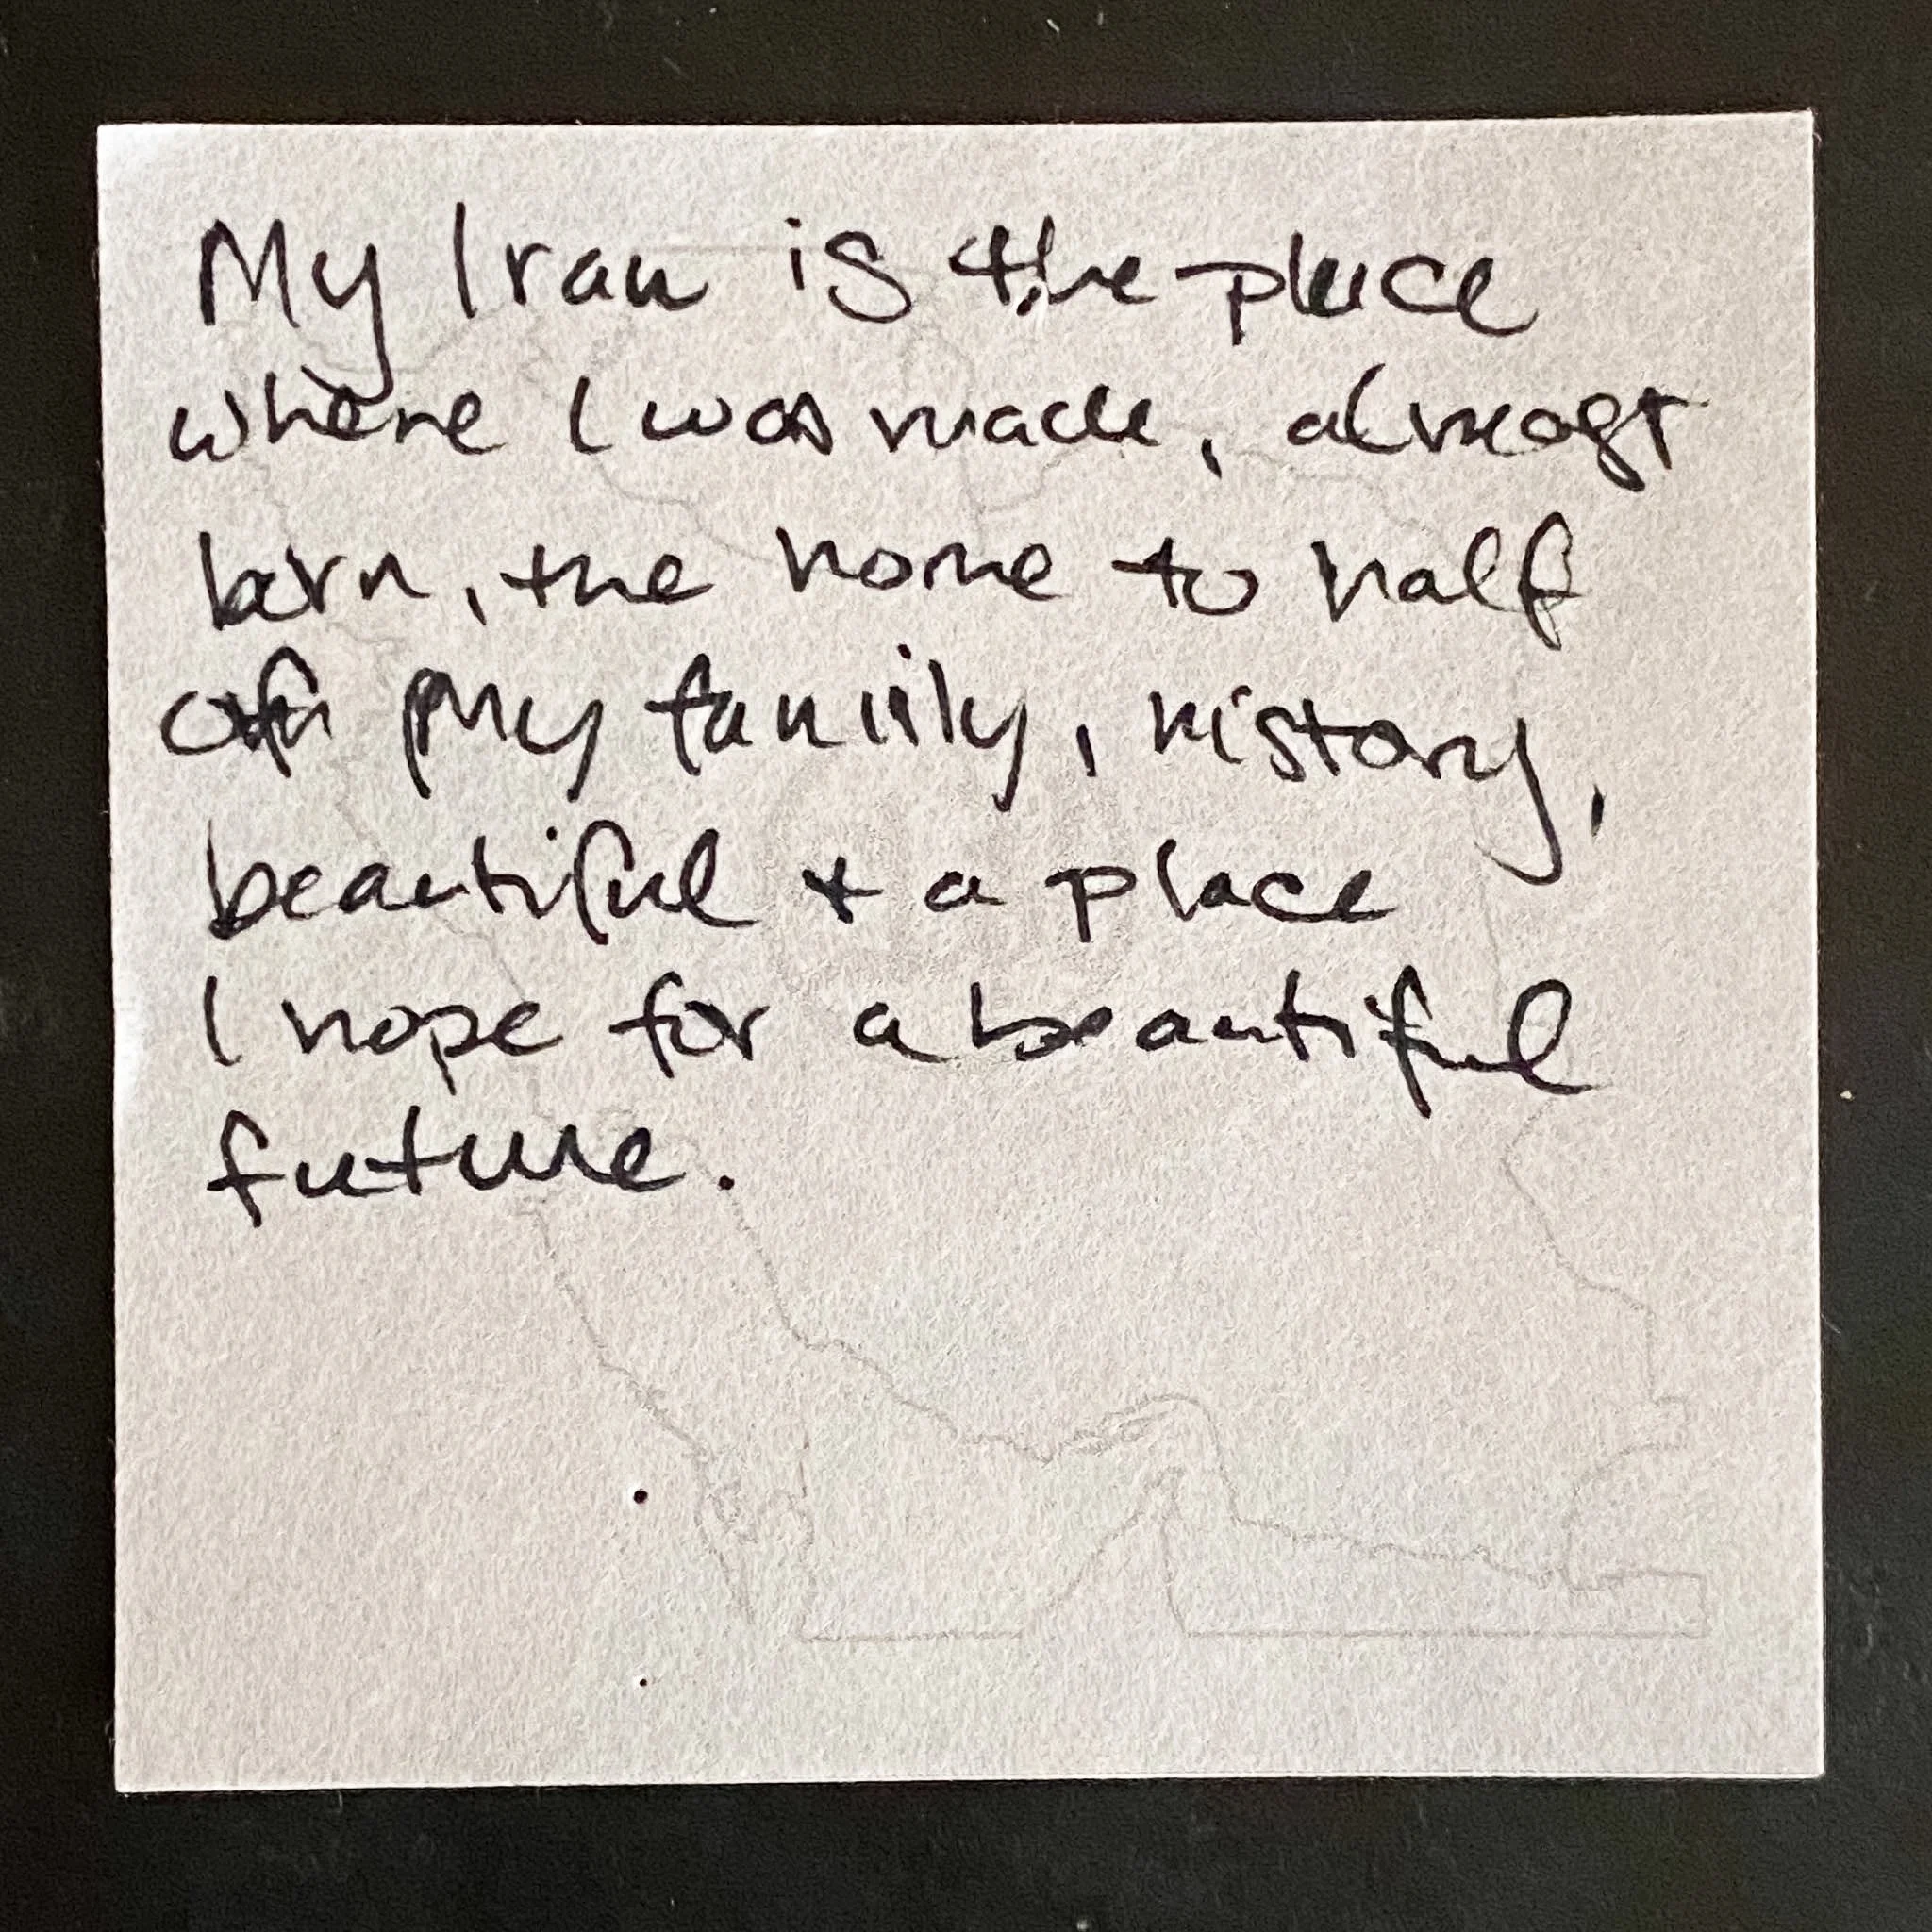 My Iran is the place
where I was made, almost
born, the home to half
of my family, history,
beautiful + a place
I hope for a beautiful
future.